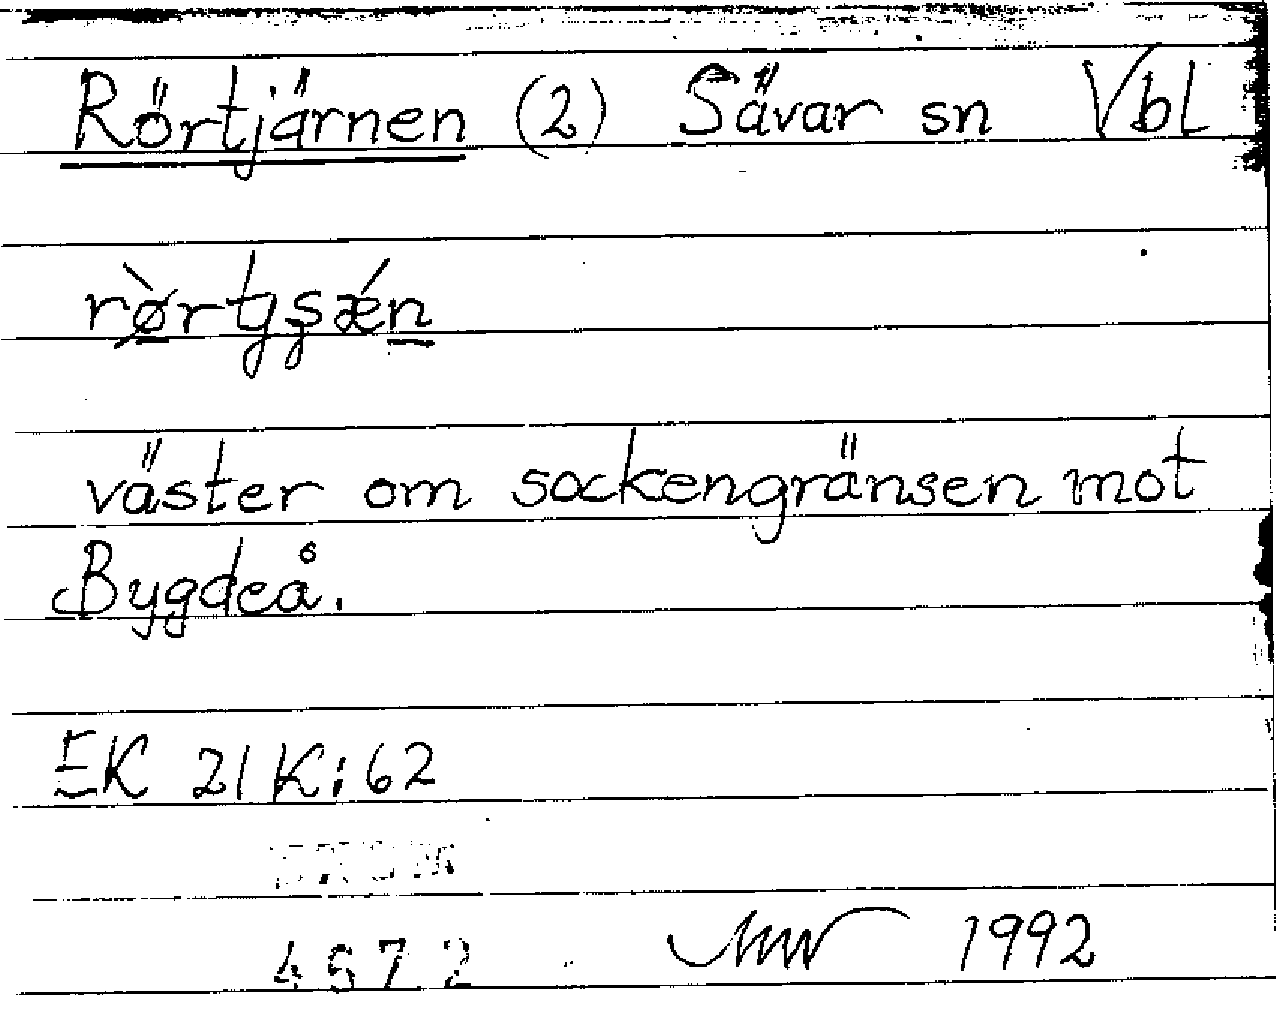 Rörtjärnen (2) Sävar sn Vbl
rø̀rtȷşǽn
väster om sockengränsen mot
Bygdeå.
EK 21 K:62
4572
1992